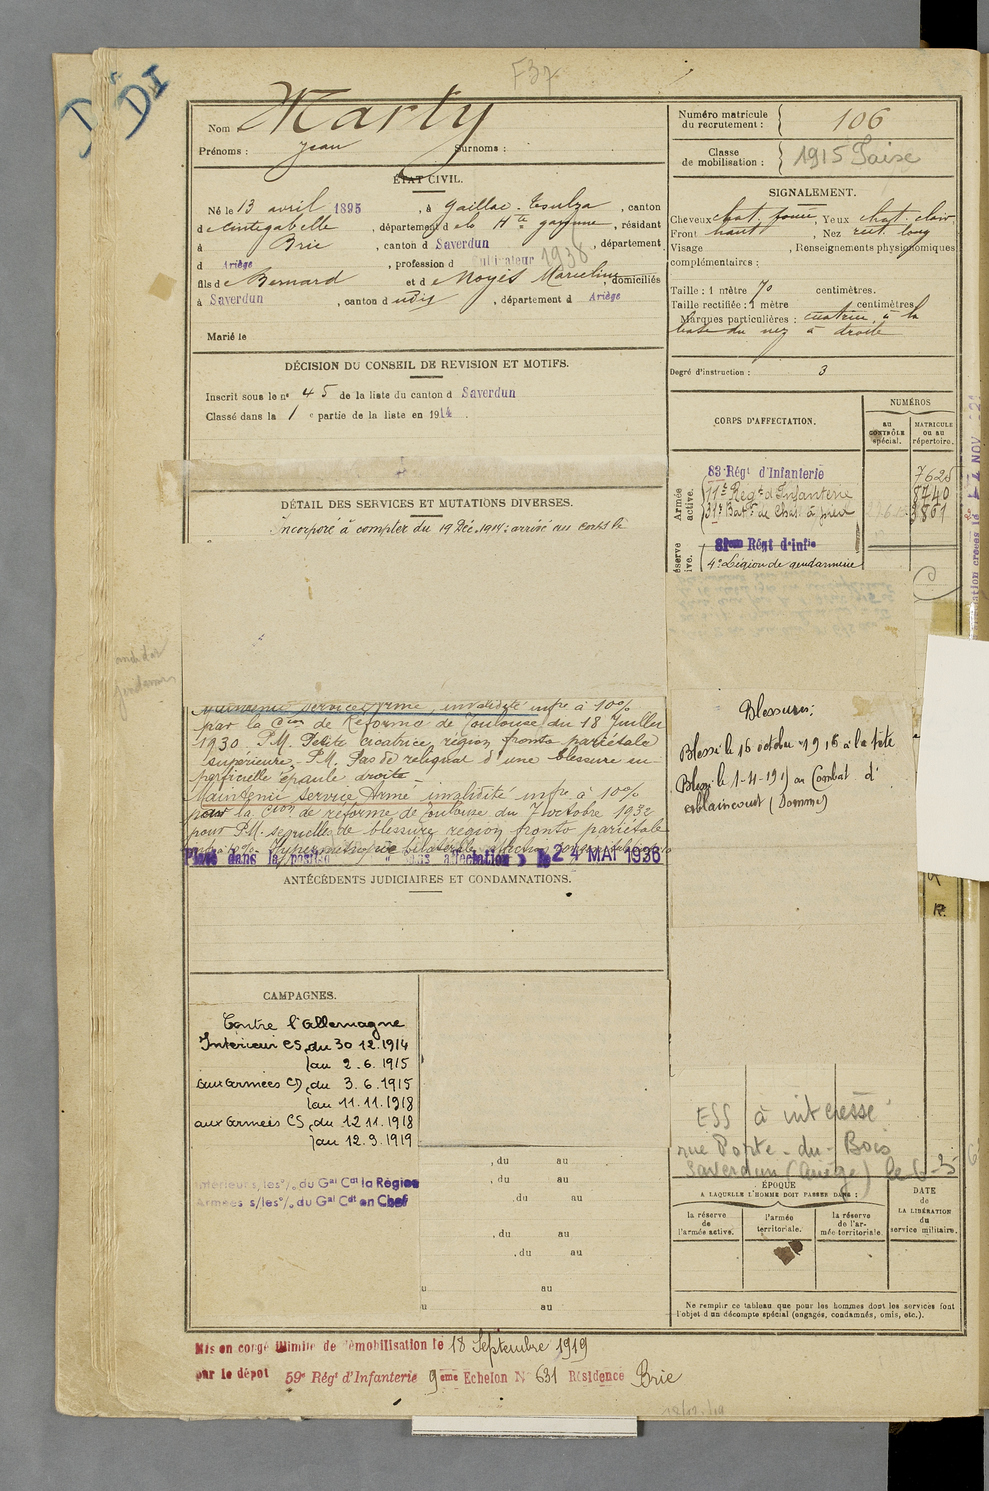 F37
DI
Nom Marty
Prénoms : Jean Surnoms :
ÉTAT CIVIL.
Né le 13 avril 1895, à Gaillac-Toulza, canton
de Cintegabelle, département d e la Hte garonne, résidant
à Brie, canton d Saverdun, département
d Ariège, profession d Cultivateur 1938
fils de Bernard et de Noyès Marceline, domiciliés
à Saverdun, canton d udit, département d Ariège
Marié le
DÉCISION DU CONSEIL DE REVISION ET MOTIFS.
Inscrit sous le nº 45 de la liste du canton d Saverdun
Classé dans la 1 e partie de la liste en 1914.
DÉTAIL DES SERVICES ET MUTATIONS DIVERSES.
Incorporé à compter du 19 Déc. 1914; arrivé au corps le
Maintenu service armé, invalidité infre à 10%
par la Cion de Réforme de Toulouse du 18 Juillet
1930. P.M. Petite cicatrice région fronto pariétale
supérieure. P.M. Pas de reliquat d'une blessure su-
perficielle épaule droite.
Maintenu Service Armé invalidité infre à 10%
par la Cion de réforme de Toulouse du 7 octobre 1932
pour P.M. séquelles de blessure région fronto pariétale
Hypermétropie bilatérale
Placé dans la position "sans affectation" le 24 MAI 1936
ANTÉCÉDENTS JUDICIAIRES ET CONDAMNATIONS.
CAMPAGNES.
Contre l'Allemagne
Intérieur CS, du 30 12. 1914
au 2. 6. 1915
aux armées CD, du 3. 6. 1915
au 11. 11. 1918
aux armées CS, du 12 11. 1918
au 12. 9. 1919
Intérieur s/les % du Gal Cdt la Région
Armées s/les % du Gal Cdt en Chef
, du au
, du au
, du au
, du au
, du au
u au
u au
Numéro matricule du recrutement : 106
Classe de mobilisation : 1915
SIGNALEMENT.
Cheveux chat. foncé, Yeux chat. clair
Front haut, Nez rect. long
Visage , Renseignements physionomiques
complémentaires :
Taille : 1 mètre 70 centimètres.
Taille rectifiée : 1 mètre centimètres.
Marques particulières : cicatrice à la
base du nez à droite
Degré d'instruction : 3
CORPS D'AFFECTATION.
NUMÉROS
au CONTRÔLE spécial.
MATRICULE ou au répertoire.
Armée active.
83 Régt d'Infanterie 7625
11e Régt d'Infanterie 8740
31e Batn de Chasr à pied 3861
81eme Régt d'infie
4e Légion de gendarmerie
Blessures:
Blessé le 16 octobre 1915 à la tête
Blessé le 1-4-191 au Combat d'
ablaincourt (Somme)
R.
ESS à intéressé
rue Porte-du-Bois
Saverdun (Ariège) le
ÉPOQUE
A LAQUELLE L'HOMME DOIT PASSER DANS :
la réserve de l'armée active.
l'armée territoriale.
la réserve de l'armée territoriale
DATE DE LA LIBÉRATION du service militaire.
Ne remplir ce tableau que pour les hommes dont les services font
l'objet d'un décompte spécial (engagés, condamnés, omis, etc.).
Mis en congé illimité de démobilisation le 18 Septembre 1919
par le dépôt 59e Régt d'Infanterie 9eme Echelon Nº 631 Résidence Brie